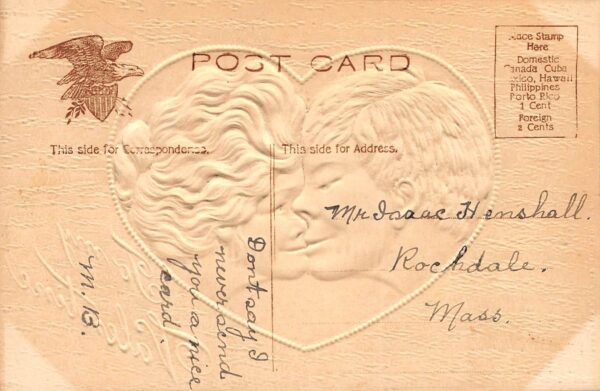 POST CARD
Place Stamp
Here
Domestic
Canada Cuba
Mexico, Hawaii
Philippines
Porto Rico
1 Cent
Foreign
2 Cents
This side for Correspondence.
This side for Address.
Mr Isaac Henshall.
Rochdale.
Mass.
Don't say I
never send
you a nice
card.
M. B.